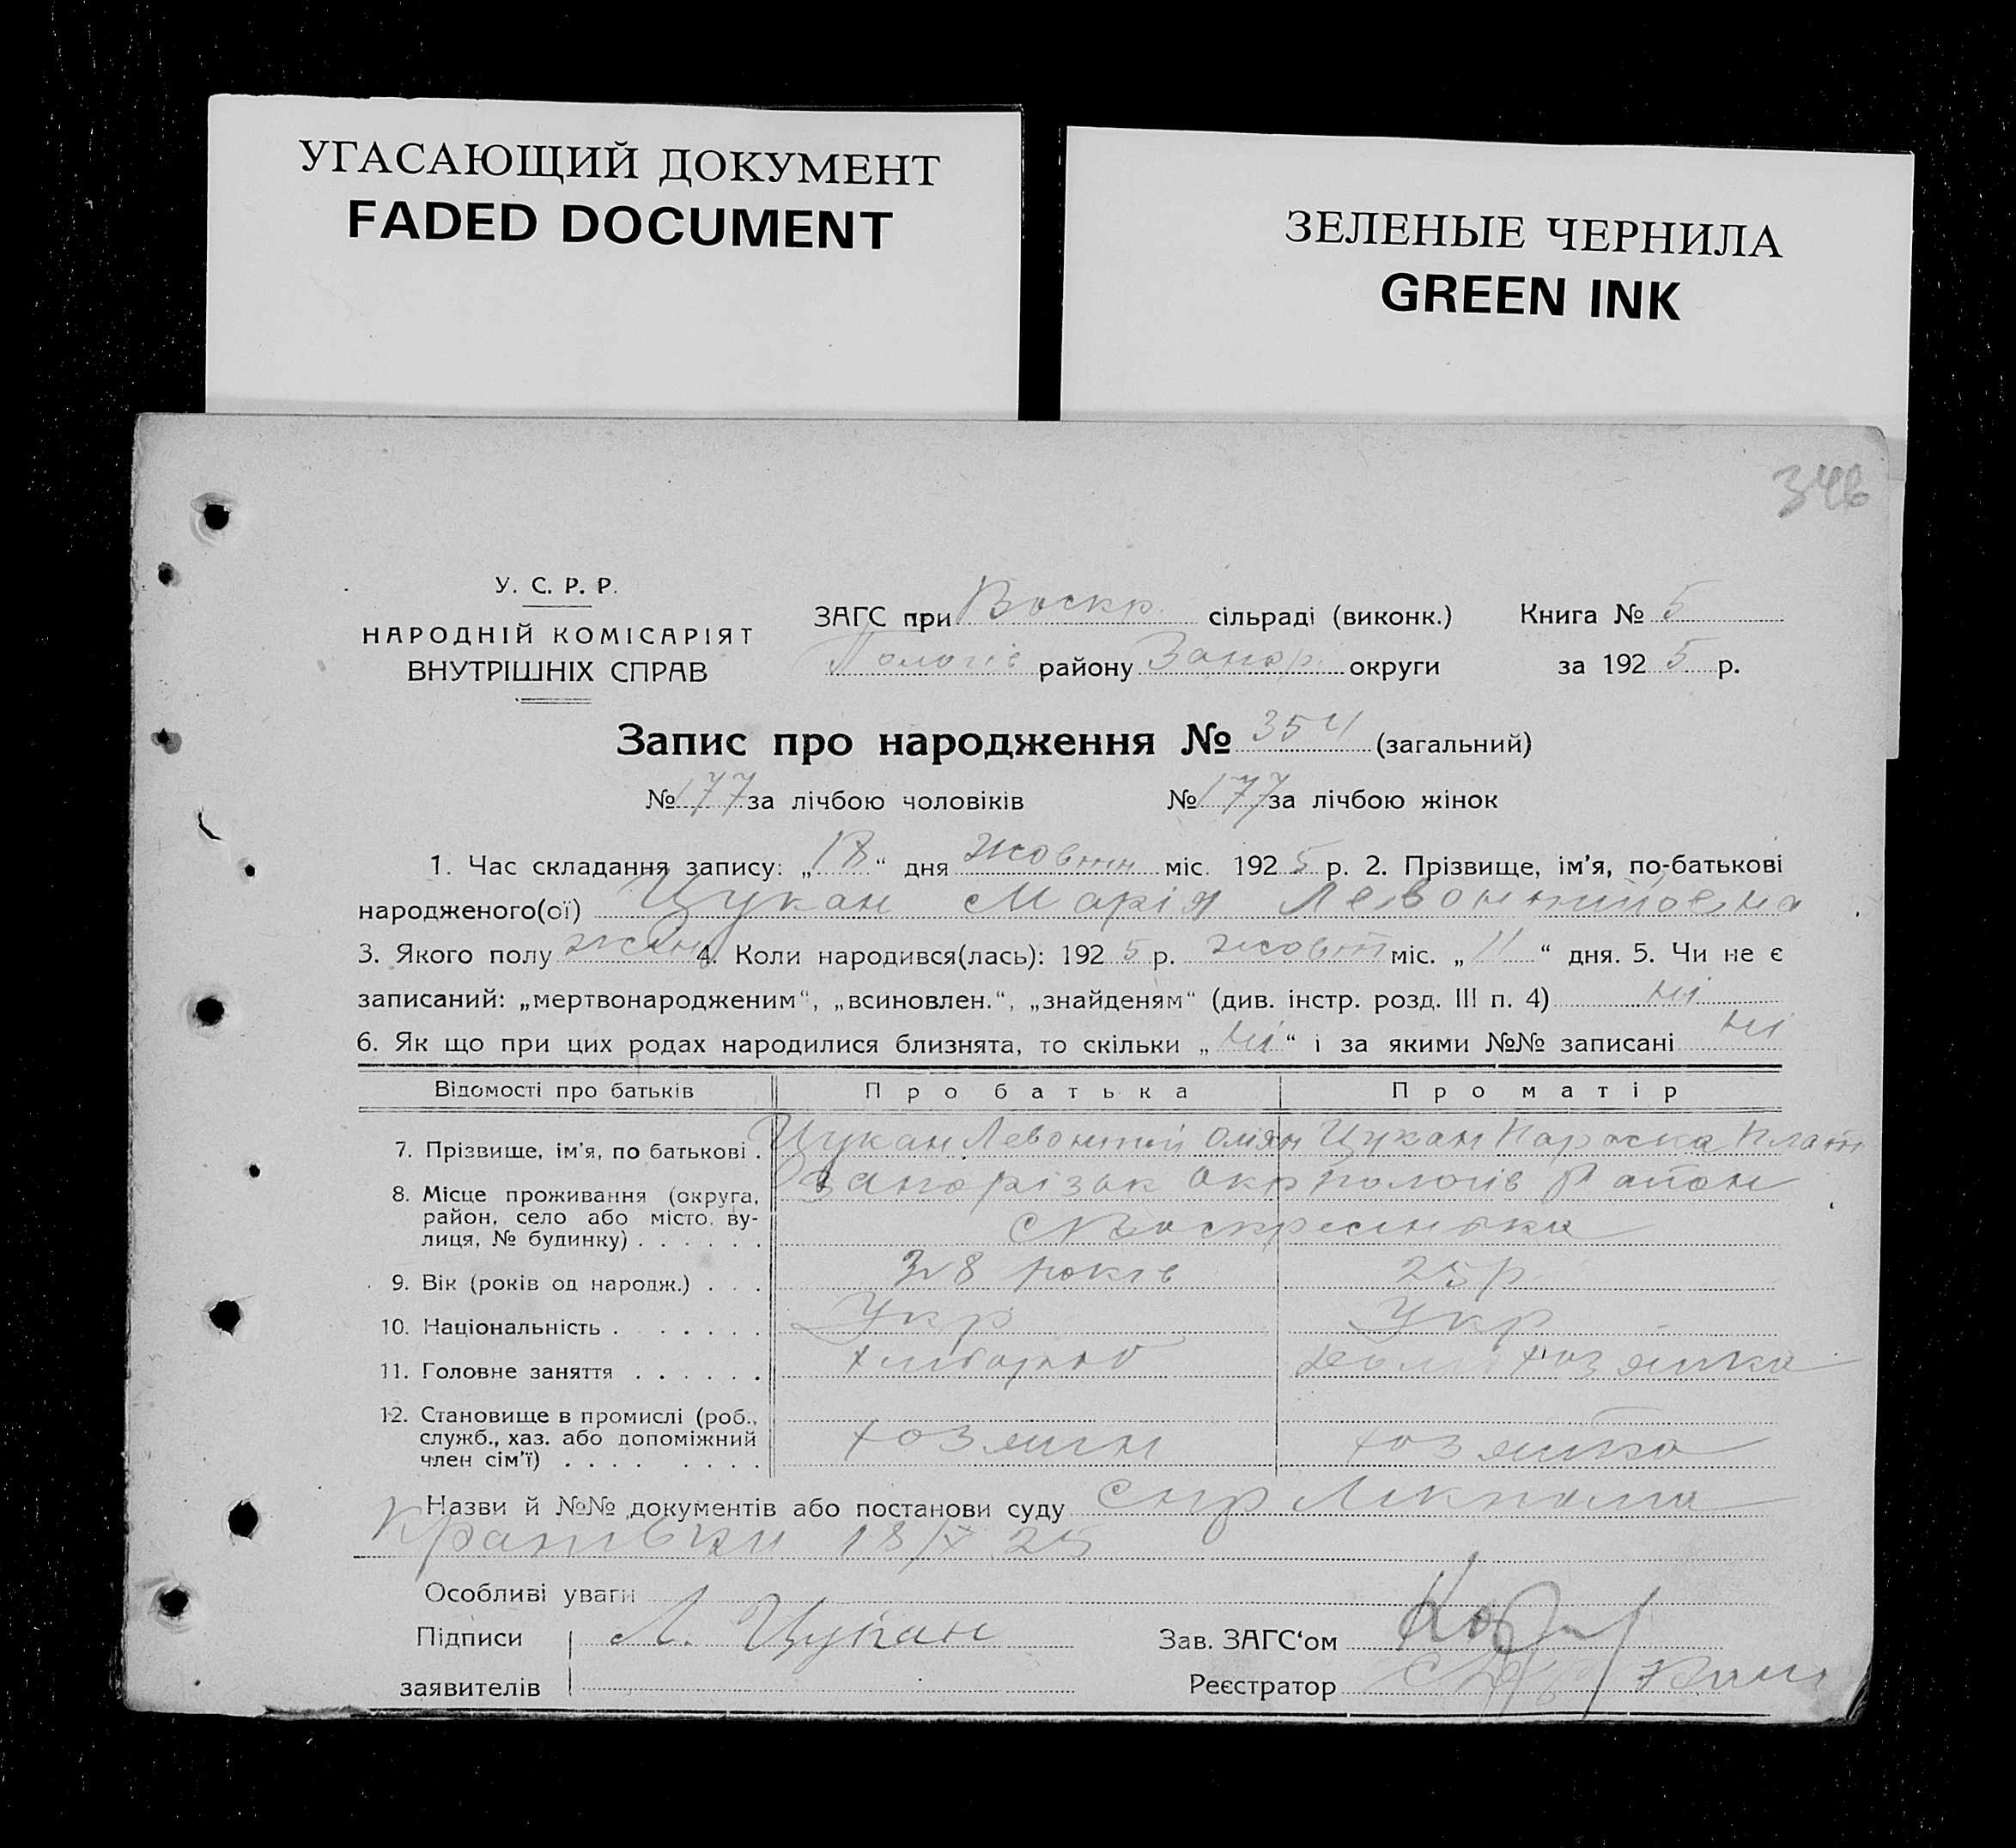 УГАСАЮЩИЙ ДОКУМЕНТ
FADED DOCUMENT
ЗЕЛЕНЫЕ ЧЕРНИЛА
GREEN INK
346
У. С. Р. Р.
НАРОДНІЙ КОМІСАРІЯТ
ВНУТРІШНІХ СПРАВ
ЗАГС при Воскр. сільраді (виконк.) Книга № 5
Пологів району Запор. округи за 1925 р.
Запис про народження № 354 (загальний)
№ 177 за лічбою чоловіків № 177 за лічбою жінок
1. Час складання запису: „18“ дня жовтн міс. 1925 р. 2. Прізвище, ім’я, по-батькові
народженого(ої) Цукан Марія Левонтийовна
3. Якого полу жін 4. Коли народився(лась): 1925 р. жовт міс. „11“ дня. 5. Чи не є
записаний: „мертвонародженим“, „всиновлен.“, „знайденям“ (див. інстр. розд. III п. 4) ні
6. Як що при цих родах народилися близнята, то скільки „ні“ і за якими №№ записані ні
Відомості про батьків Про батька Про матір
7. Прізвище, ім’я, по батькові . Цукан Левонтий Омян Цукан Параска Плат
8. Місце проживання (округа, Запорізьк окр пологів Район
район, село або місто, ву-
лиця, № будинку) . . . . . . с Воскресенька
9. Вік (років од народж.) . . . 38 років 25 р
10. Національність . . . . . . . Укр Укр
11. Головне заняття . . . . . . хлібороб дом хозяйка
12. Становище в промислі (роб.,
служб., хаз. або допоміжний хозяин хозяйка
член сім’ї) . . . . . . . .
Назви й №№ документів або постанови суду
18/X 25
Особливі уваги
Підписи Л. Цукан Зав. ЗАГС‘ом
заявителів Реєстратор